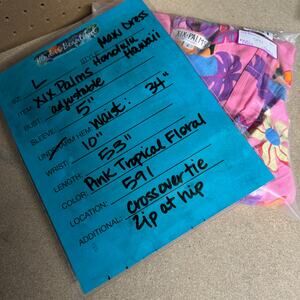 SZ: L
ITEM: XIX Palms Maxi Dress
Honolulu Hawaii
BUST: adjustable
SLEEVE: 5"
UNDERARM HEM: Waist: 34"
WRIST: 10"
LENGTH: 53"
COLOR: Pink Tropical Floral
LOCATION: 591
ADDITIONAL: Crossover tie
Zip at hip
XIX·PALMS